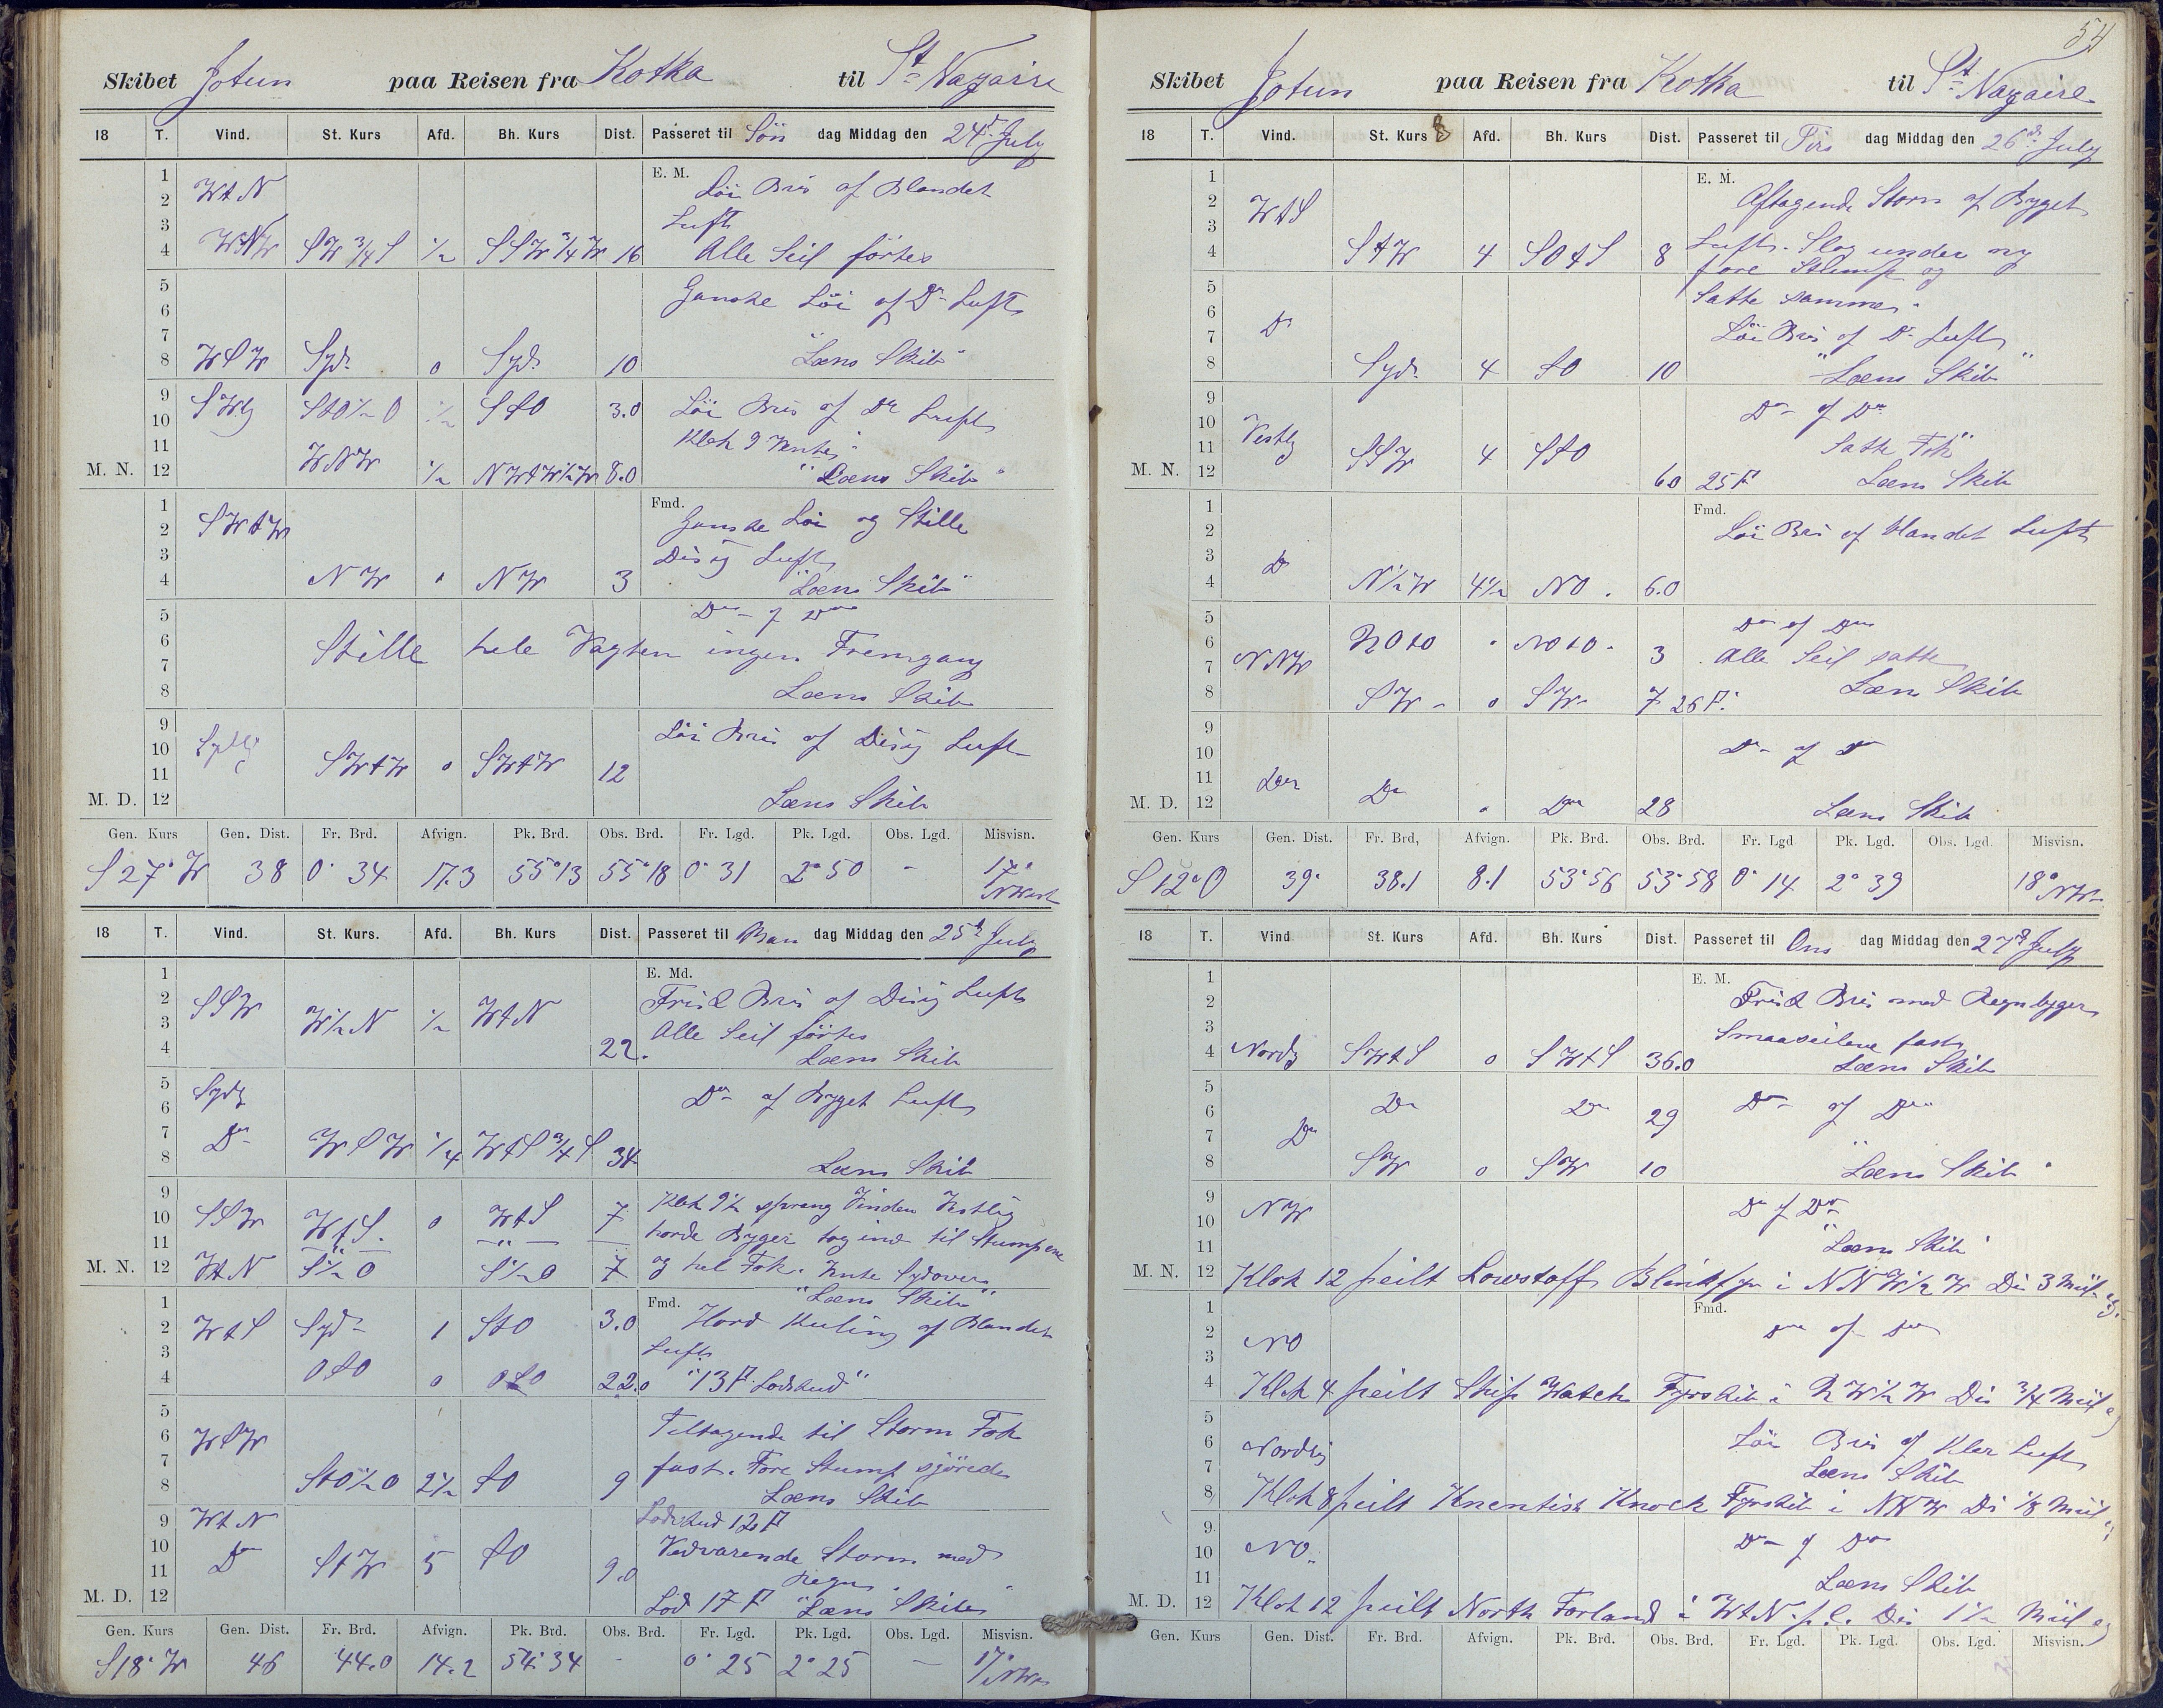 Skibet Jotun paa Reisen fra Kotka til St Nazaire
18 T. Vind. St. Kurs Afd. Bh. Kurs Dist. Passeret til Søn dag Middag den 24de July
1 E. M. Löi Bris af Blandet
2 WtN
3 Luft
4 WNW SW 3/4 S 1/2 SSW 3/4 W 16 Alle Seil förtes
5 Ganske Löi af Do Luft
6
7
8 WSW Syd. 0 Syd. 10 "Læns Skib"
9 SWly StO 1/2 O 1/2 StO 3.0 Löi Bris af Do Luft
10
11 Klok 9 Vente
M. N. 12 WNW 1/2 NWtW 1/2 W 8.0 "Læns Skib"
1 Fmd. Ganske Löi og Stille
2 SWtW
3 Disig Luft
4 NW " NW 3 "Læns Skib"
5 Do af Do
6 Stille hele Vagten ingen Fremgang
7
8 Læns Skib
9 Löi Bris af Disig Luft
10 Sydlig
11 SWtW 0 SWtW 12
M. D. 12 Læns Skib
Gen. Kurs Gen. Dist. Fr. Brd. Afvign. Pk. Brd. Obs. Brd. Fr. Lgd. Pk. Lgd. Obs. Lgd. Misvisn.
S 27° W 38 0° 34 17.3 55° 13 55° 18 0° 31 2° 50 - 17° NWest
18 T. Vind. St. Kurs. Afd. Bh. Kurs Dist. Passeret til Man dag Middag den 25de July
1 E. Md.
2 SSW Frisk Bris af Disig Luft
3 W 1/2 N 1/2 WtN Alle Seil förtes
4 22. Læns Skib
5 Sydly
6 Do af Bygget Luft
7 Do WSW 1/4 WtS 3/4 S
8 34 Læns Skib
9 Klok 9 1/2 sprang Vinden Vestlig
10 SSW WtS. 0 WtS 7 haarde Byger tog ind til Stumpene
11 — " — — " —
M. N. 12 WtN S 1/2 O S 1/2 O 7 og hel Fok. Vente Sydover
"Læns Skib"
1 Fmd.
2 WtS Syd 1 StO 3.0 Hard Kuling af Blandet
3 Luft
4 OtO 0 OtO 22.0 "13 F. Lodskud"
5
6 WSW Tiltagende til Storm Fok
7 fast. Fore Stump gjöredes
8 StO 1/2 O 2 1/2 SO 9 Læns Skib
9 WtN Lodskud 12 F
10 Vedvarende Storm med
11 Do StW 5 SO 9.0 Regn
M. D. 12 Lod 17 F "Læns Skib"
Gen. Kurs Gen. Dist. Fr. Brd. Afvign. Pk. Brd. Obs. Brd. Fr. Lgd. Pk. Lgd. Obs. Lgd. Misvisn.
S 18° W 46 44.0 14.2 54° 34 - 0° 25 2° 25 — 17° NWes
54
Skibet Jotun paa Reisen fra Kotka til St Nazaire
18 T. Vind. St. Kurs 8 Afd. Bh. Kurs Dist. Passeret til Tirs dag Middag den 26de July
1 E. M.
2 Aftagende Storm af Byget
3 WtS
4 StW 4 SOtS 8 Luft. Slog under ny
fore Stump og
5 Satte samme.
6
7 Do Löi Bris af Do Luft
8 Syd. 4 SO 10 "Læns Skib"
9 Do af Do
10
11 Vestly SSW 4 StO Satte Fok
M. N. 12 60 25 F Læns Skib
1 Fmd.
2 Löi Bris af blandet Luft
3 Do
4 N 1/2 W 4 1/2 NO. 6.0
5 Do af Do
6 NOtO " NOtO. 3
7 NNW Alle Seil satte
8 SW - 0 SW 7 26 F. Læns Skib
9
10 Do af Do
11 Do
M. D. 12 Do " Do 28 Læns Skib
Gen. Kurs Gen. Dist. Fr. Brd, Afvign. Pk. Brd. Obs. Brd. Fr. Lgd Pk. Lgd. Obs. Lgd. Misvisn.
S 12° O 39. 38.1 8.1 53° 56 53° 58 0° 14 2° 39 18° NW
18 T. Vind St. Kurs Afd. Bh. Kurs Dist. Passeret til Ons dag Middag den 27de July
1 E. M.
2 Frisk Bris med Regnbyger
3 Smaaseilene fast
4 Nordly SWtS 0 SWtS 36.0 Læns Skib
5
6 Do Do 29 Do af Do
7 Do
8 SW 0 SW 10 "Læns Skib"
9 NW Do af Do
10
11 "Læns Skib"
M. N. 12 Klok 12 peilt Lowstoff Blinkfyr i NNW 1/2 W Dis 3 Miil ag.
1 Fmd.
2 NO Do af Do
3
4 Klok 4 peilt Ship Watch Fyrskib i NW 1/2 W Dis 3/4 Miil ag
5
6 Nordlig Löi Bris af Klar Luft
7 Læns Skib
8 Klok 8 peilt Knentish Knock Fyrskib i NNW Di 1/8 Miil ag
9
10 NO Do af Do
11 Læns Skib
M. D. 12 Klok 12 peilt North Forland i WtN. p. C. Dis 1 1/2 Miil ag
Gen. Kurs Gen. Dist. Fr. Brd. Afvign. Pk. Brd. Obs. Brd. Fr. Lgd. Pk. Lgd. Obs. Lgd. Misvisn.